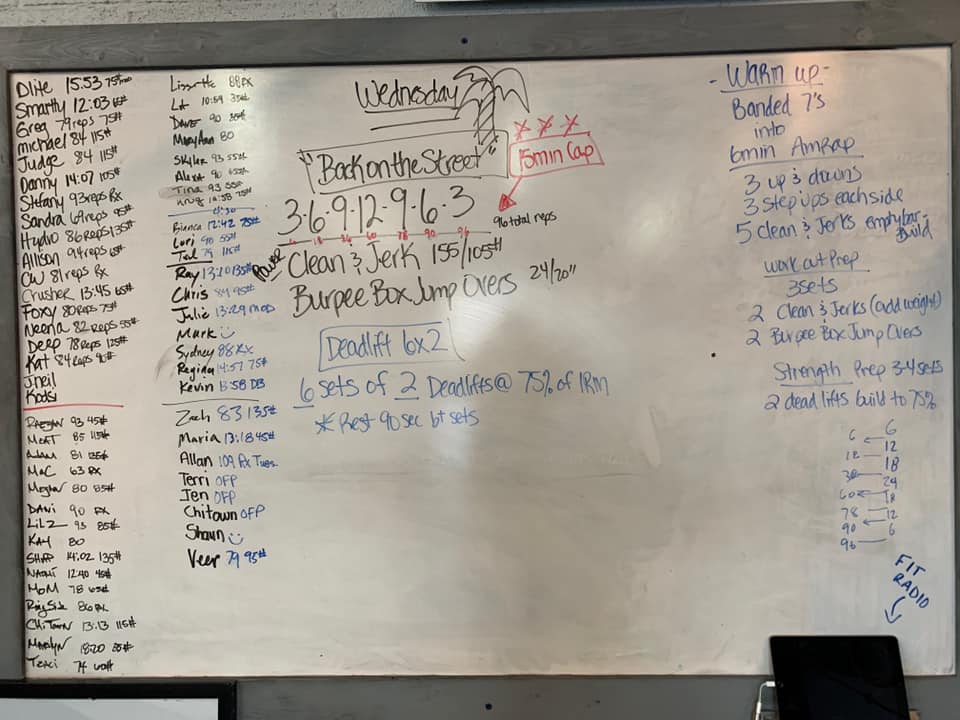 Smarthy 12:03 65#
Greg 79 reps 75#
michael 84 115#
Judge 84 115#
Danny 14:07 105#
Stefany 93 reps Rx
Sandra 69 reps 95#
Hydro 86 reps 135#
Allison 94 reps 65#
CW 81 reps Rx
Crusher 13:45 65#
Foxy 80 reps 75#
Neena 82 reps 55#
Deep 78 Reps 125#
Kat 84 reps 90#
Jneil
Kodsi
Raegan 93 45#
Moat 85 115#
Adam 81 135#
Mac 63 Rx
Meghan 80 85#
Dani 90 Rx
Lil Z 93 85#
Kay 80
Sharp 14:02 135#
Naomi 12:40 45#
Mom 78 65#
RingSide 86 Rx
ChiTown 13:13 115#
Marilyn 18:20 35#
Traci 74 60#
Lizette 88 Rx
LA 10:59 35#
Dave 90 85#
MaryAnn 80
Skyler 93 55#
Alexa 90 65#
Tina 93 55#
Bianca 12:42 75#
Lori 90 55#
Ted 79 115#
Ray 13:20 135#
Chris 84 95#
Julie 13:29 mod
Mark
Sydney 88 Rx
Regina 14:57 75#
Kevin 13:58 DB
Zach 83 135#
Maria 13:18 45#
Allan 109 Rx Tues.
Terri OFP
Jen OFP
Chitown OFP
Shaun
Veer 79 95#
Wednesday
"Back on the Street"
15 min Cap
3·6·9·12·9·6·3
96 total reps
6 18 36 60 78 90 96
Power
Clean & Jerk 155/105#
Burpee Box Jump Overs 24/20"
Deadlift 6x2
6 sets of 2 Deadlifts @ 75% of 1RM
* Rest 90 sec bt sets
- Warm up -
Banded 7's
into
6min AmRap
3 up & downs
3 step ups each side
5 Clean & Jerks empty bar - Build
Workout Prep
3 sets
2 Clean & Jerks (add weight)
2 Burpee Box Jump Overs
Strength Prep 3-4 sets
2 deadlifts build to 75%
6 6
18 12
36 18
60 24
78 18
90 12
96 6
FIT
RADIO